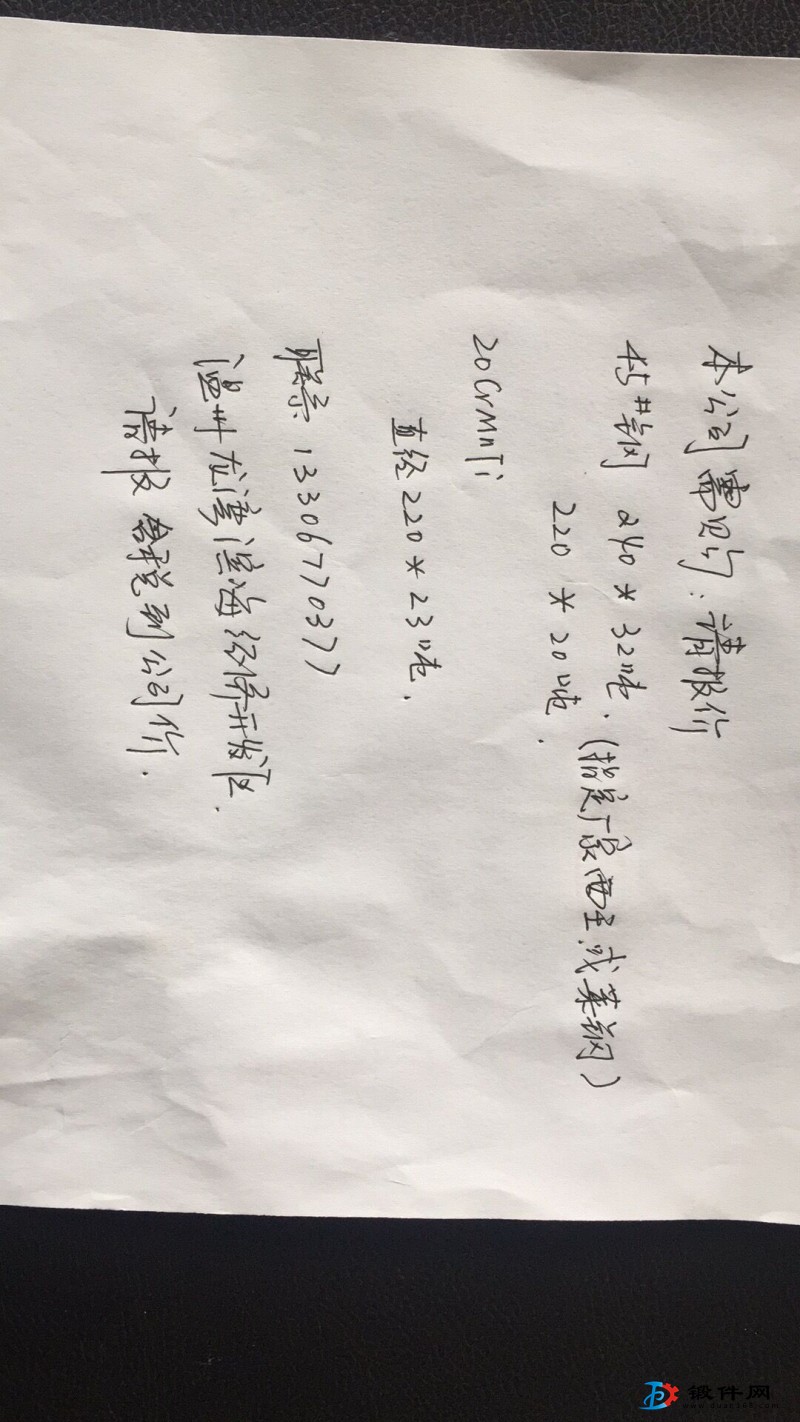 本公司需购：请报价
45#钢 240*32吨．(指定厂家西王或莱钢)
220*20吨．
20CrMnTi
直径220*23吨．
联系 13306770377
温州龙湾滨海经济开发区．
请报含税到公司价．
锻件网
www.duan168.com